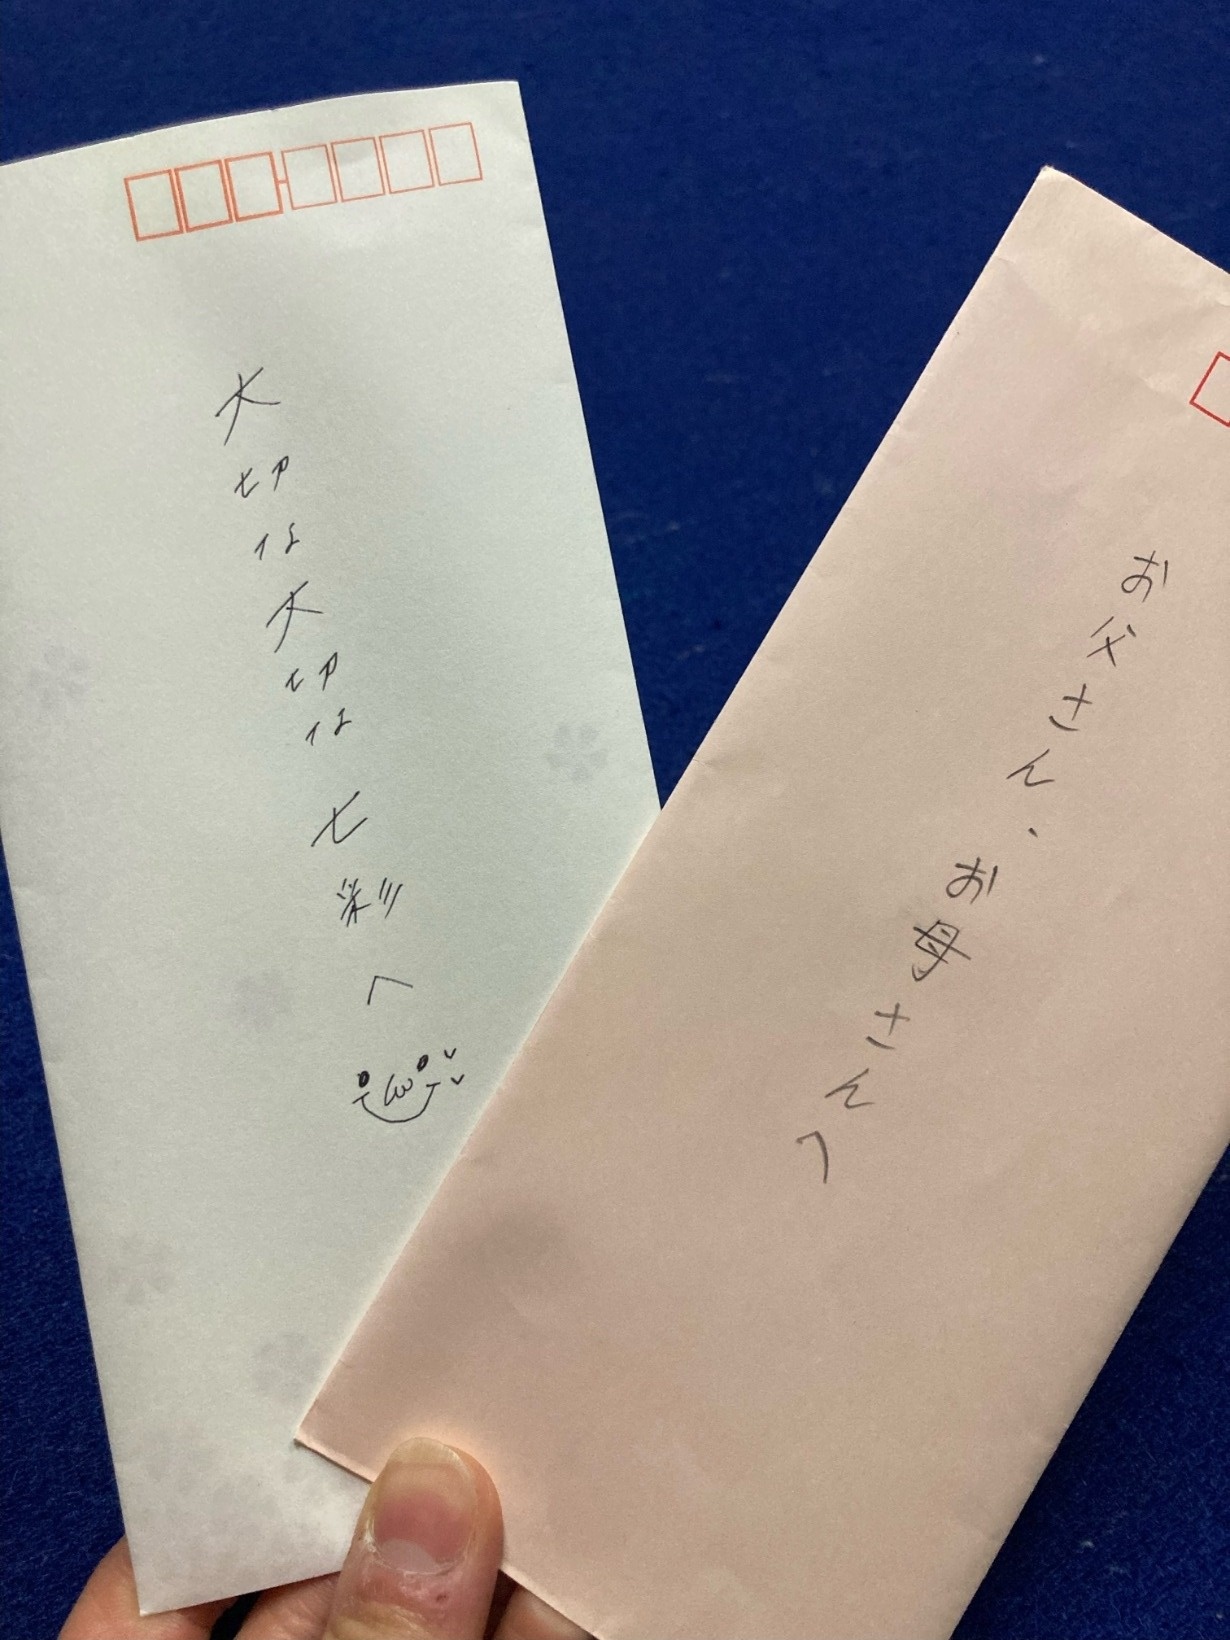 大切な大切な七彩へ
お父さん、お母さんへ